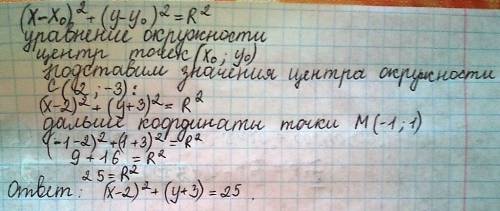 (x-x₀)²+(y-y₀)²=R²
уравнение окружности
центр точек (x₀; y₀)
подставим значения центра окружности
с (2; -3):
(x-2)²+(y+3)²=R²
дальше координаты точки M(-1;1)
(-1-2)²+(1+3)²=R²
9+16=R²
25=R²
Ответ: (x-2)²+(y+3)=25.